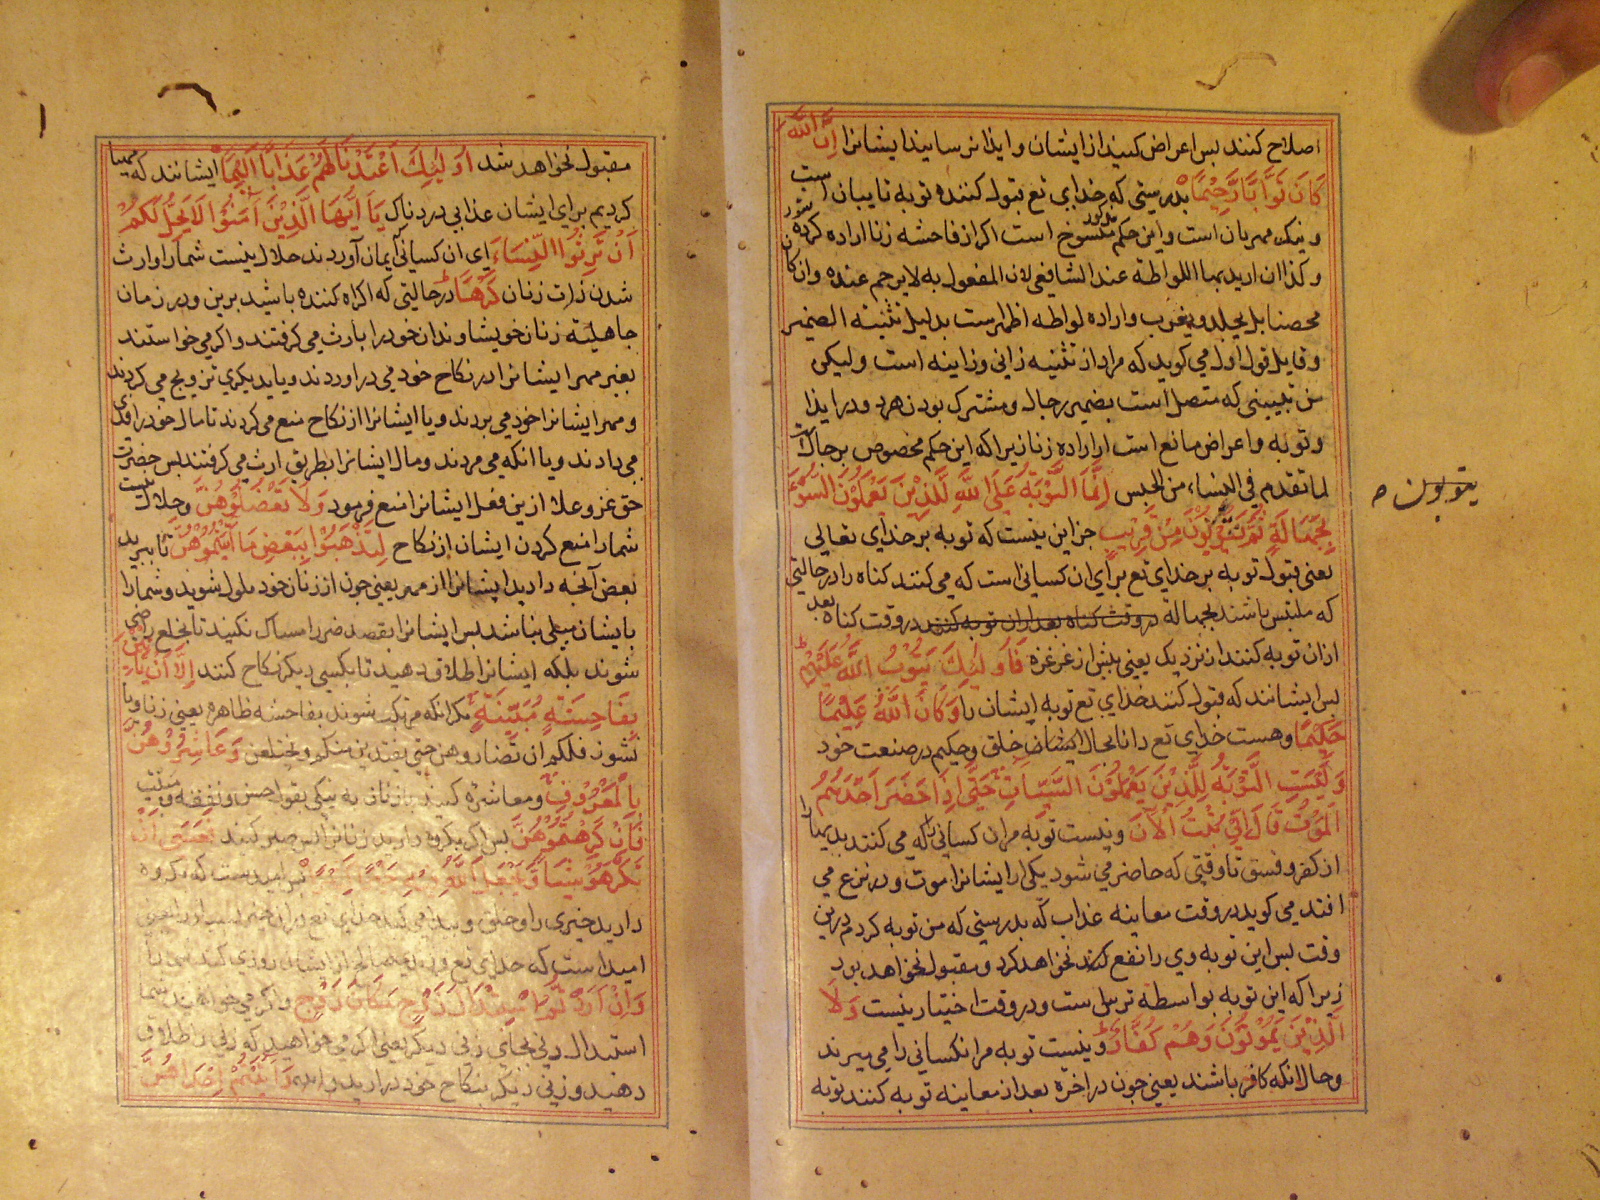 اصلاح کنند بس اعراض کنید از ایشان و ایذا نرسانید ایشانرا اِنَّ اللّٰهَ
کَانَ تَوَّابًا رَّحِیْمًا بدرستی که خدای تع قبول کننده توبه تایبان است
و نیک مهربان است و این حکم منسوخ است اکر از فاحشه زنا اراده کرده شود
و کذا ان ارید بها اللواطة عند الشافعی لان المفعول به لا یرجم عنده وان کان
محصنا بل یجلد و یغرب و اراده لواطه اظهرست بدلیل تثنیه الضمیر
و قایل قول اول می کوید که مراد از تثنیه زانی و زانیه است ولیکن
من تبیینی که متصل است بضمیر رجال و مشترک بودن هر دو در ایذا
و توبه و اعراض مانع است از اراده زنا زیرا که این حکم مخصوص برجالست
لما تقدم فی النساء من الحبس اِنَّمَا التَّوْبَةُ عَلَی اللّٰهِ لِلَّذِیْنَ یَعْمَلُوْنَ السُّوْٓءَ
بِجَهَالَةٍ ثُمَّ یَتُوْبُوْنَ مِنْ قَرِیْبٍ جز این نیست که توبه بر خدای تعالی
یتوبون
یعنی قبول توبه بر خدای تع برای ان کسانی است که می کنند کناه را در حالتی
که ملتبس باشند بجهالة در وقت کناه بعد ازان توبه کنند در وقت کناه بعد
ازان توبه کنند از نزدیک یعنی بیش از غرغره فَاُولٰٓئِکَ یَتُوْبُ اللّٰهُ عَلَیْهِمْ
بس ایشانند که قبول کنند خدای تع توبه ایشان را وَکَانَ اللّٰهُ عَلِیْمًا
حَکِیْمًا و هست خدای تع دانا بحال ایشان خلق و حکیم در صنعت خود
وَلَیْسَتِ التَّوْبَةُ لِلَّذِیْنَ یَعْمَلُوْنَ السَّیِّاٰتِ حَتّٰی اِذَا حَضَرَ اَحَدَهُمُ
الْمَوْتُ قَالَ اِنِّیْ تُبْتُ الْاٰنَ و نیست توبه مر ان کسانی را که می کنند بدیها را
از کفر و فسق تا وقتی که حاضر می شود یکی را ایشانرا موت و در نزع می
افتد می کوید در وقت معاینه عذاب که بدرستی که من توبه کردم درین
وقت بس این توبه وی را نفع نخواهد کرد و مقبول نخواهد بود
زیرا که این توبه بواسطه ترس ست و در وقت اختیار نیست وَلَا
الَّذِیْنَ یَمُوْتُوْنَ وَهُمْ کُفَّارٌ و نیست توبه مر انکسانی را می میرند
و حال انکه کافر باشند یعنی جون در اخره بعد از معاینه توبه کنند توبه
مقبول نخواهد شد اُولٰٓئِکَ اَعْتَدْنَا لَهُمْ عَذَابًا اَلِیْمًا ایشانند که مهیا
کردیم برای ایشان عذابی دردناک یَا اَیُّهَا الَّذِیْنَ اٰمَنُوْا لَا یَحِلُّ لَکُمْ
اَنْ تَرِثُوا النِّسَاءَ ای ان کسانی که ایمان آوردند حلال نیست شمارا وارث
شدن ذات زنان کَرْهًا در حالتی که اکراه کننده باشید برین و در زمان
جاهلیة زنان خویشاوندان خود را بارث می کرفتند و اکر می خواستند
بغیر مهر ایشانرا در نکاح خود می در اوردند و یا بدیکری تزویج می کردند
و مهر ایشانرا خود می بردند و یا ایشانرا از نکاح منع می کردند تا مال خود را فدی
می دادند و یا انکه می مردند و مال ایشانرا بطریق ارث می کرفتند بس حضرت
حق عز و علا ازین فعل ایشانرا منع فرمود وَلَا تَعْضُلُوْهُنَّ و حلال نیست
شمارا منع کردن ایشان از نکاح لِتَذْهَبُوْا بِبَعْضِ مَا اٰتَیْتُمُوْهُنَّ تا ببرید
بعض آنجه دادید ایشانرا از مهر یعنی جون از زنان خود ملول شوید و شمارا
بایشان میلی نباشد بس ایشانرا بقصد ضرر امساک نکنید تا بخلع راضی
شوند بلکه ایشانرا طلاق دهید تا بکسی دیکر نکاح کنند اِلَّا اَنْ یَّاْتِیْنَ
بِفَاحِشَةٍ مُّبَیِّنَةٍ مکر انکه مرتکب شوند بفاحشه ظاهره یعنی زنا و یا
نشوز فلکم ان تضاروهن حتی یفتدین منکم و یختلعن وَعَاشِرُوْهُنَّ
بِالْمَعْرُوْفِ و معاشره کنید با زنان به نیکی بقول حسن و نفقه و مبیت
فَاِنْ کَرِهْتُمُوْهُنَّ بس اکر مکروه دارید زنانرا بس صبر کنید فَعَسٰی اَنْ
تَکْرَهُوْا شَیْئًا وَّیَجْعَلَ اللّٰهُ فِیْهِ خَیْرًا کَثِیْرًا که مکروه
دارید جیزی را و خلق و پیدا می کند خدای تع دران خیر بسیار را یعنی
امید است که خدای تع فرزند صالح از ایشان روزی کند شمارا
وَاِنْ اَرَدْتُّمُ اسْتِبْدَالَ زَوْجٍ مَّکَانَ زَوْجٍ و اکر می خواهید شما
استبدال زنی بجای زنی دیکر یعنی اکر می خواهید که زنی را طلاق
دهید و زنی دیکر بنکاح خود در ارید وَّاٰتَیْتُمْ اِحْدٰهُنَّ